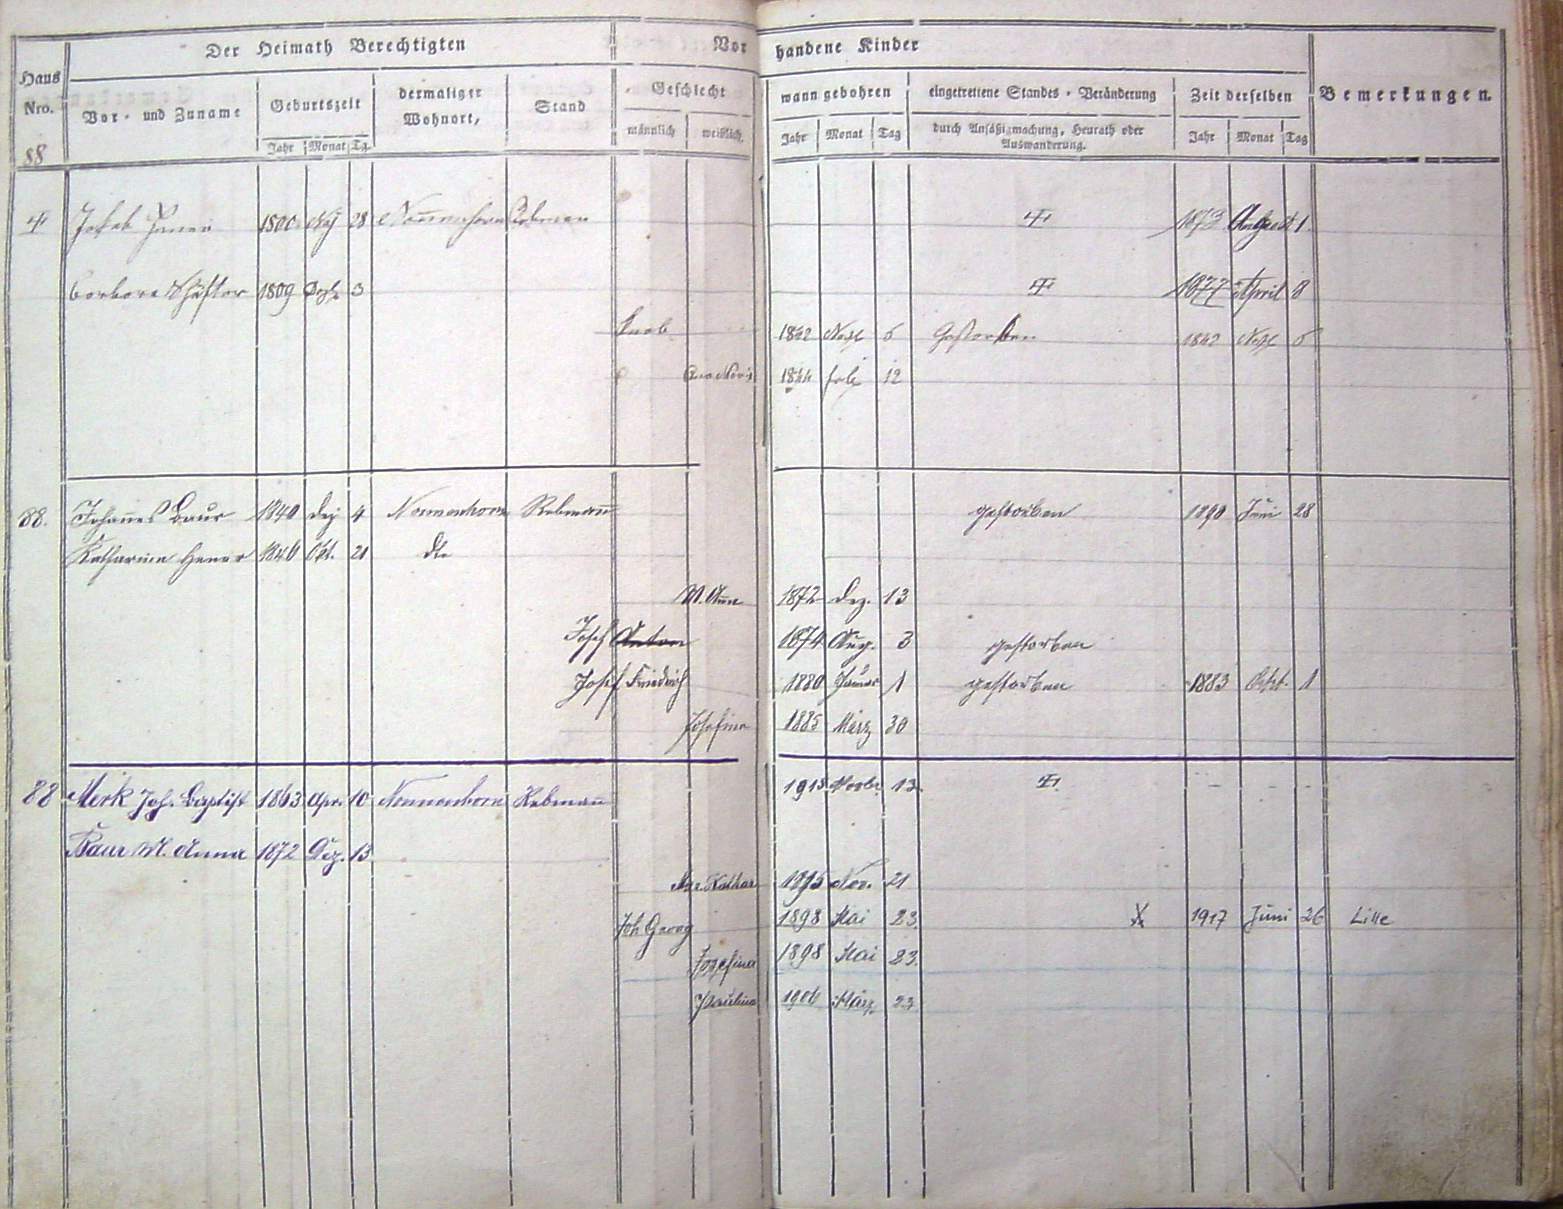 Der Heimath Berechtigten
Vorhandene Kinder
Haus Nro.
Vor- und Zuname
Geburtszeit
dermaliger Wohnort,
Stand
Geschlecht
wann gebohren
eingetrettene Standes-Veränderung
Zeit derselben
Bemerkungen.
durch Ansäßigmachung, Heurath oder Auswanderung.
Jahr Monat Tg.
männlich weiblich.
Jahr Monat Tag
Jahr Monat Tag
88
Jakob 1800 28 Nonnenhorn Rebmann 1873 August 1
Barbara 1809 3 1877 April 8
Knab 1842 6 Gestorben 1842 6
1844 Feb 12
88. Johannes Baur 1840 Dez 4 Nonnenhorn Rebmann gestorben 1890 Juni 28
Katharina Hener 1846 Okt. 21 dto
M. Anna 1872 Dez. 13
Josef Anton 1874 Aug. 3 gestorben
Josef Friedrich 1880 Januar 1 gestorben 1883 Okt. 1
Josefina 1885 März 30
88 Merk Joh. Baptist 1863 Apr. 10 Nonnenhorn Rebmann 1913 Novbr. 13
Baur M. Anna 1872 Dez. 13
Mar. Kathar 1895 Nov. 21
Joh Georg 1898 Mai 23. 1917 Juni 26 Lille
Josefina 1898 Mai 23.
Paulina 1906 März 23